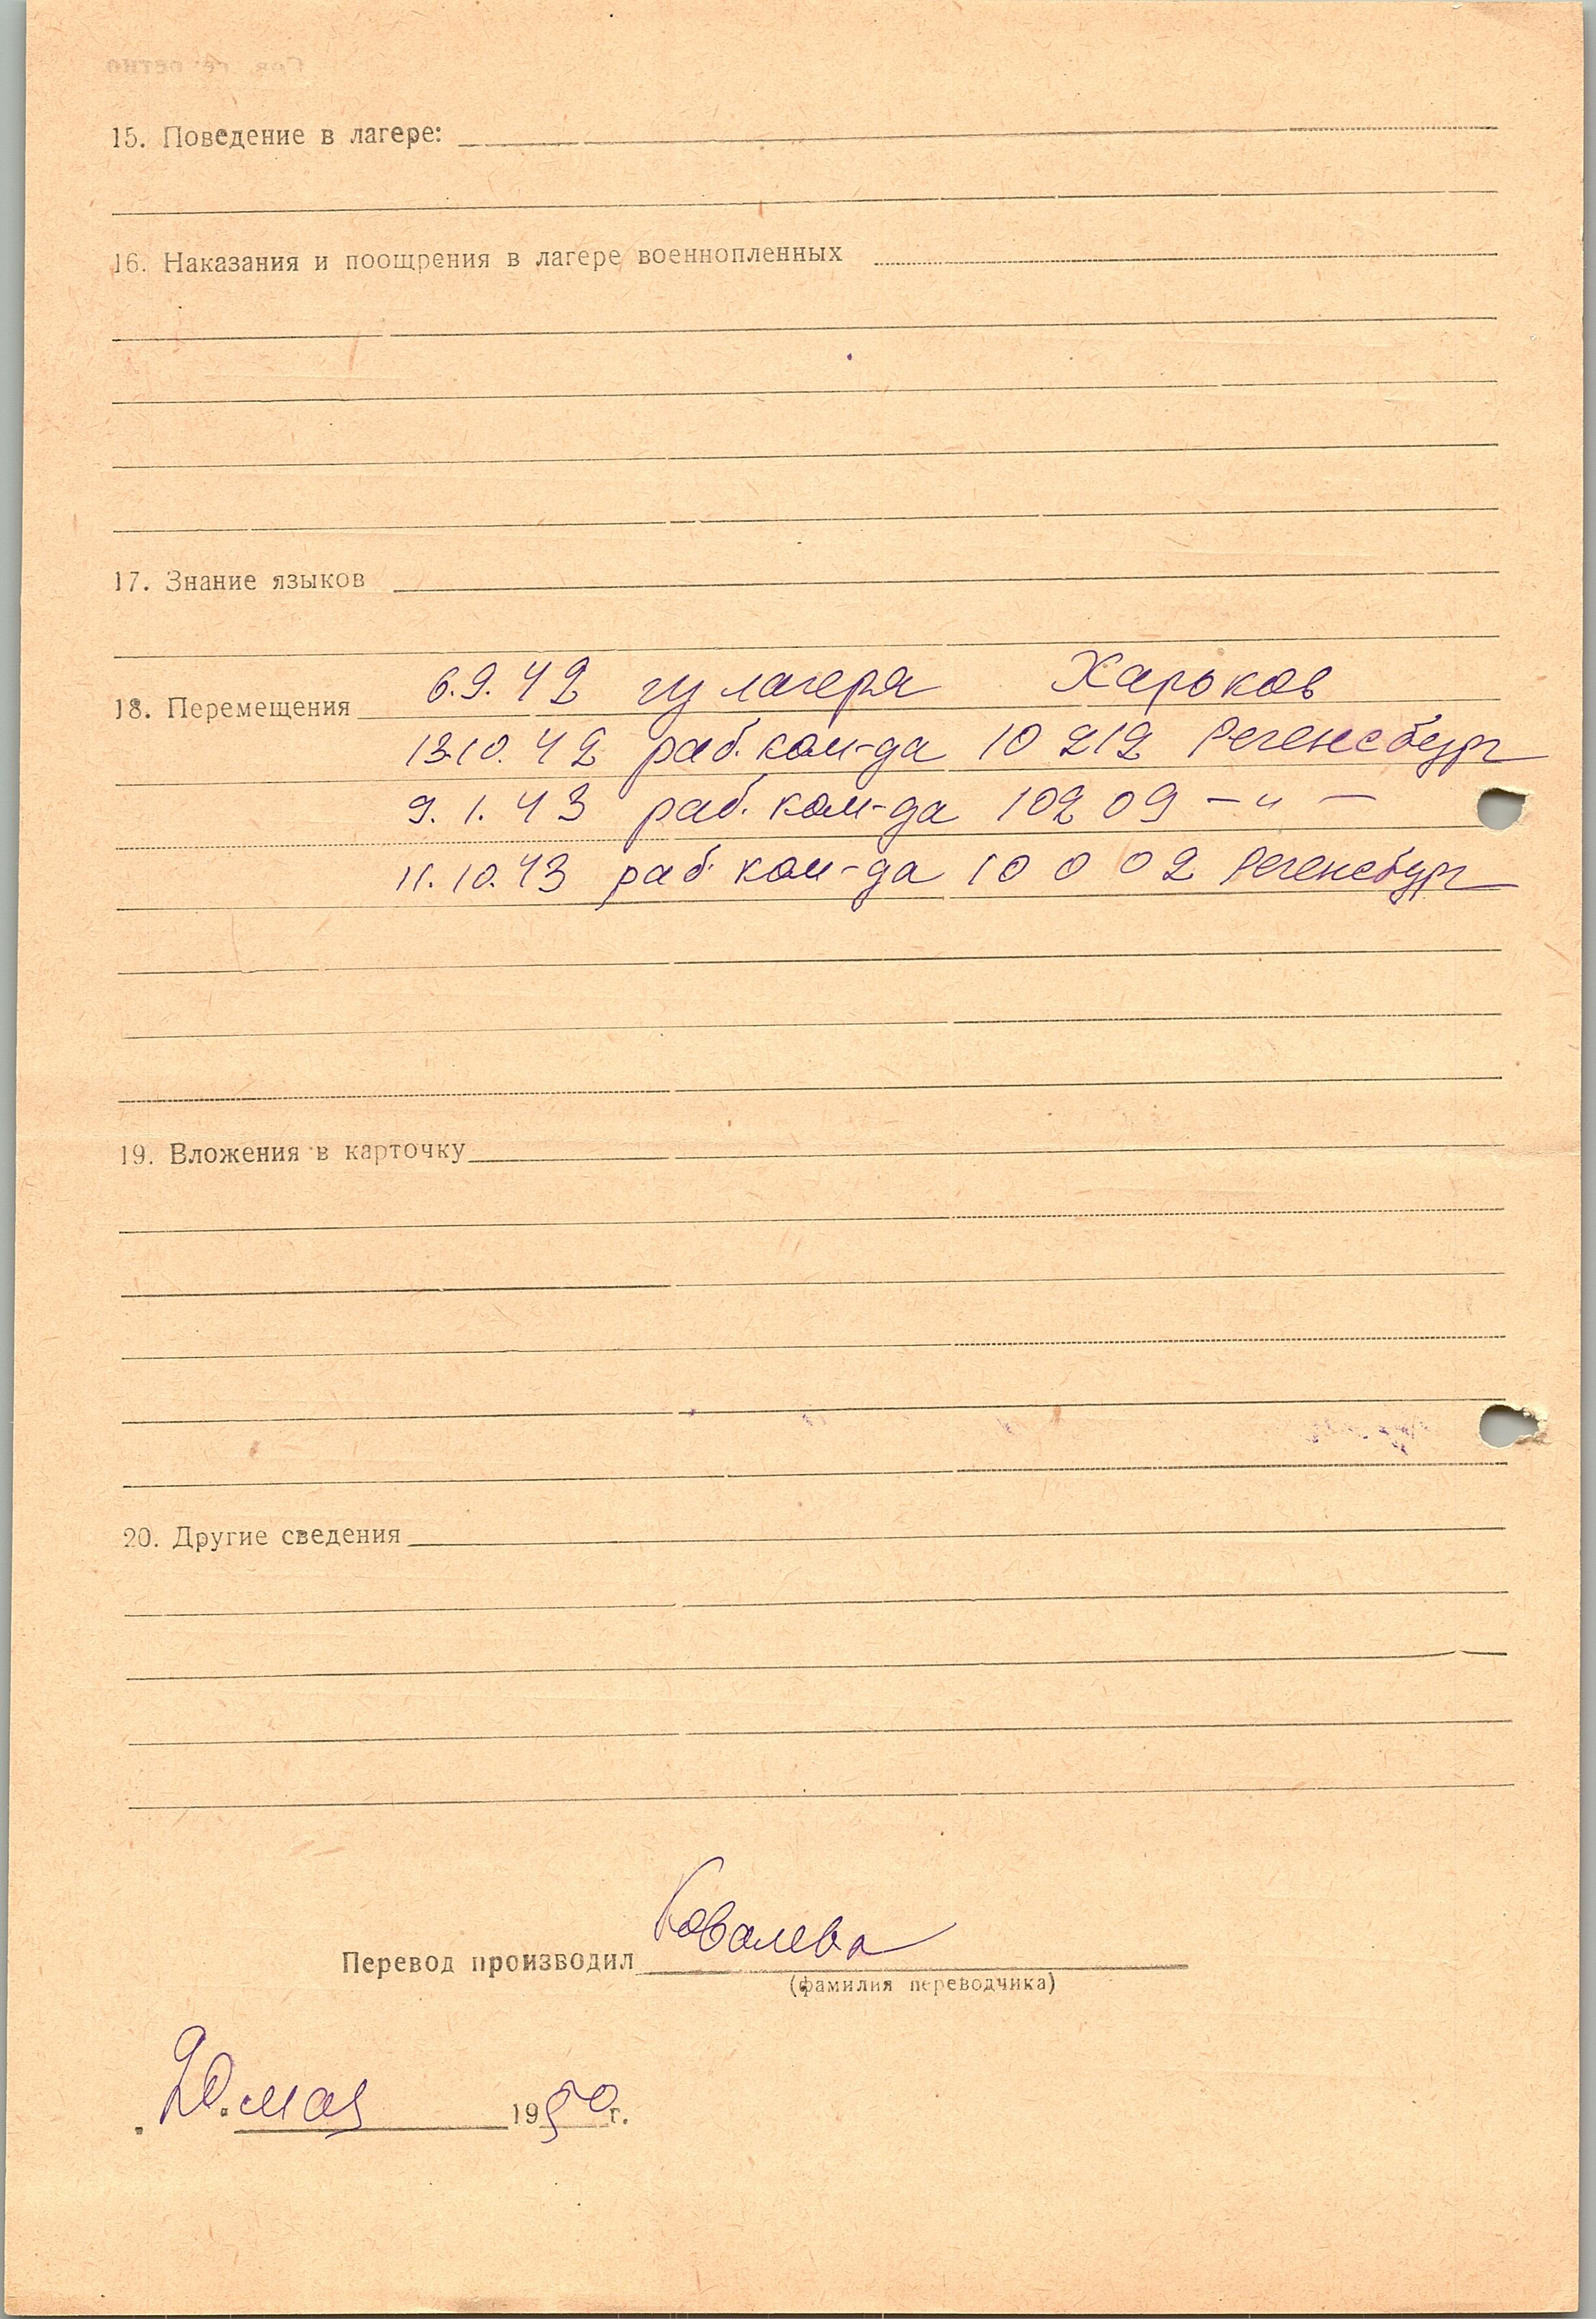 15. Поведение в лагере:
16. Наказания и поощрения в лагере военнопленных
17. Знание языков
18. Перемещения 6.9.42 из лагеря Харьков
13.10.42 раб. ком-да 10212 Регенсбург
9.1.43 раб. ком-да 10209 — " —
11.10.43 раб. ком-да 10002 Регенсбург
19. Вложения в карточку
20. Другие сведения
Перевод производил Ковалева
(фамилия переводчика)
20. мая 1950 г.